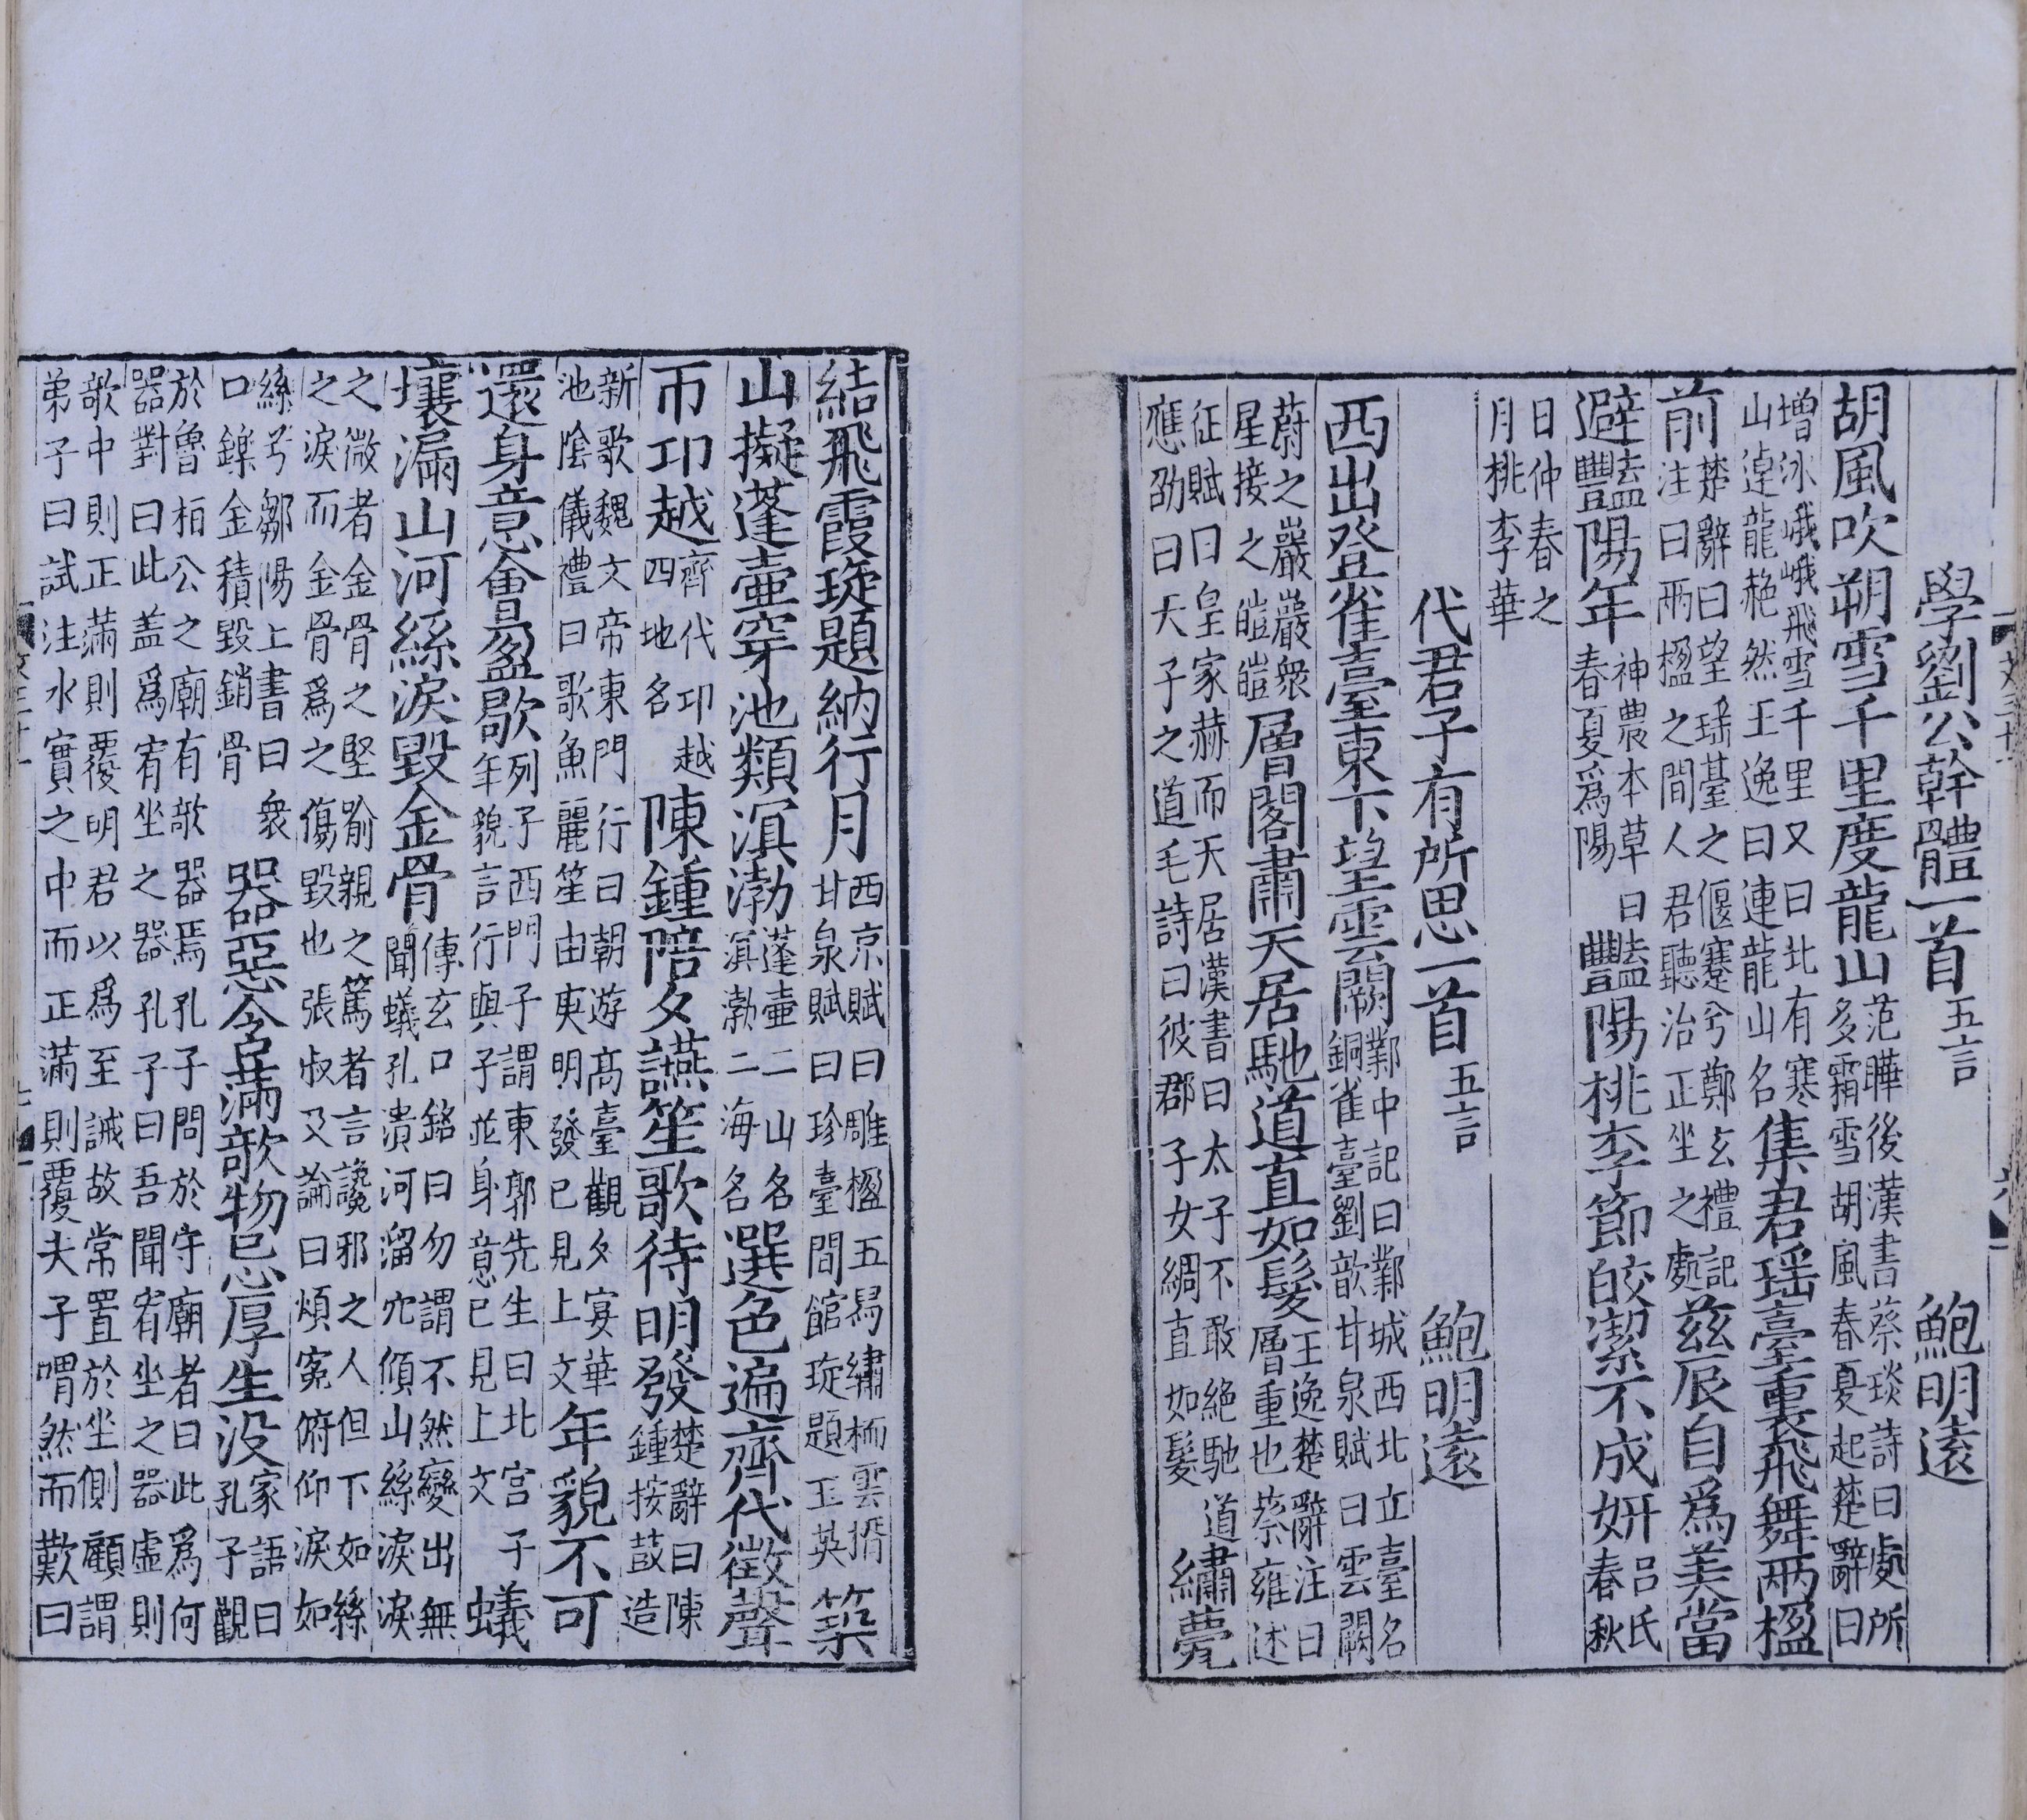 學劉公幹體一首五言　鮑明遠
胡風吹朔雪千里度龍山范曄後漢書蔡琰詩曰處所多霜雪胡風春夏起楚辭曰
增冰峨峨飛雪千里又曰北有寒山逴龍赩然王逸曰連龍山名集君瑶臺裏飛舞兩楹
前楚辭曰望瑶臺之偃蹇兮鄭玄禮記注曰兩楹之間人君聽治正坐之處兹辰自爲美當
避豔陽年神農本草曰春夏爲陽豔陽桃李節皎潔不成妍吕氏春秋
日仲春之月桃李華
代君子有所思一首五言　鮑明遠
西出登雀臺東下望雲闕鄴中記曰鄴城西北立臺名銅雀臺劉歆甘泉賦曰雲闕
蔚之巖巖衆星接之皚皚層閣肅天居馳道直如髮王逸楚辭注曰層重也蔡雍述
征賦曰皇家赫而天居漢書曰太子不敢絶馳道應劭曰天子之道毛詩曰彼郡子女綢直如髮繡甍
結飛霞琁題納行月西京賦曰雕楹玉舄繡栭雲楣甘泉賦曰珍臺間館琁題玉英築
山擬蓬壷穿池類溟渤蓬壷二山名溟渤二海名選色遍齊代徵聲
帀卭越齊代卭越四地名陳鍾陪夕讌笙歌待明發楚辭曰陳鍾按鼓造
新歌魏文帝東門行曰朝游髙臺觀夕宴華池隂儀禮曰歌魚麗笙由庚明發已見上文年貌不可
還身意會盈歇列子西門子謂東郭先生曰北宫子年貌言行與子並身意已見上文蟻
壤漏山河絲淚毀金骨傳玄口銘曰勿謂不然變出無聞蟻孔潰河溜穴傾山絲淚淚
之微者金骨之堅喻親之篤者言讒邪之人但下如絲之淚而金骨爲之傷毀也張叔及論曰煩寃俯仰淚如
絲兮鄒陽上書曰衆口鑠金積毀銷骨器惡含滿欹物忌厚生没家語曰孔子觀
於魯桓公之廟有欹器焉孔子問於守廟者曰此爲何器對曰此盖爲宥坐之器孔子曰吾聞宥坐之器虚則
欹中則正滿則覆明君以爲至誡故常置於坐側顧謂弟子曰試注水實之中而正滿則覆夫子喟然而歎曰